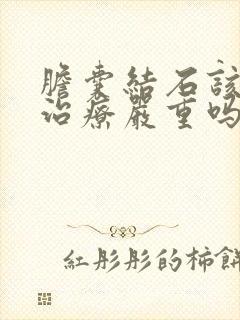 膽囊結石該
治療嚴重嗎
紅彤彤的柿餅